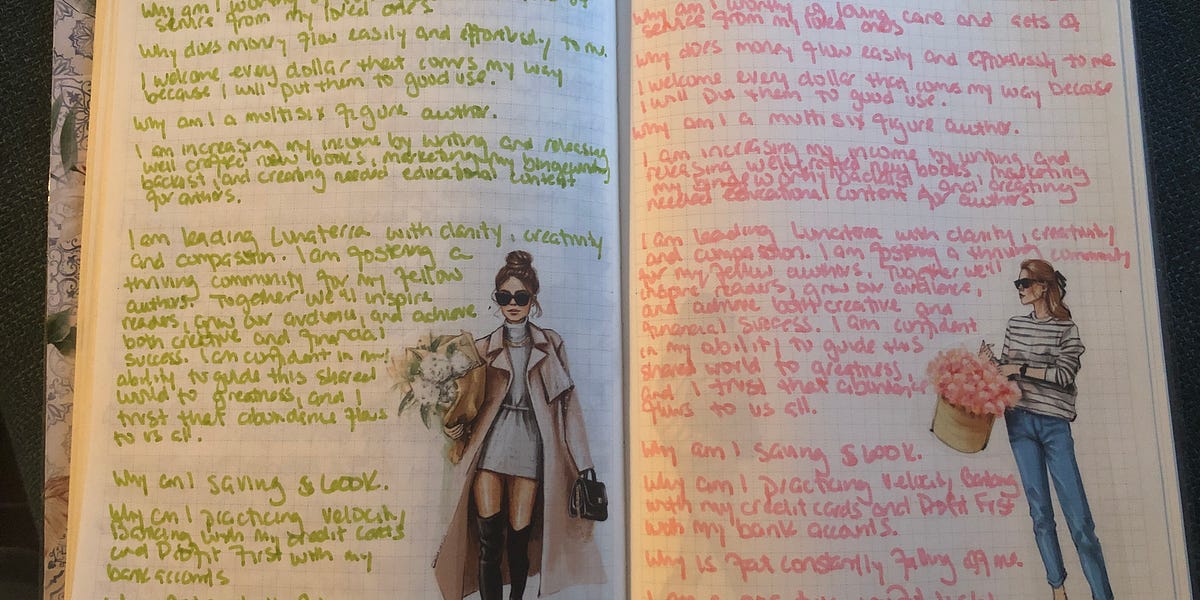 Why am I worthy of
service from my loved ones
Why does money flow easily and effortlessly to me.
I welcome every dollar that comes my way
because I will put them to good use.
Why am I a multisix figure author.
I am increasing my income by writing and releasing
well crafted new books, marketing my bingeworthy
backlist, and creating needed educational content
for authors.
I am leading Lunaterra with clarity, creativity
and compassion. I am fostering a
thriving community for my fellow
authors. Together we'll inspire
readers, grow our audience, and achieve
both creative and financial
success. I am confident in my
ability to guide this shared
world to greatness, and I
trust that abundance flows
to us all.
Why am I saving $100K.
Why am I practicing velocity
Banking with my credit cards
and Profit First with my
bank accounts
Why am I worthy of loving care and acts of
service from my loved ones
Why does money flow easily and effortlessly to me
I welcome every dollar that comes my way because
I will put them to good use.
Why am I a multisix figure author.
I am increasing my income by writing and
releasing well crafted new books, marketing
my bingeworthy backlist, and creating
needed educational content for authors
I am leading Lunaterra with clarity, creativity
and compassion. I am fostering a thriving community
for my fellow authors. Together we'll
inspire readers, grow our audience,
and achieve both creative and
financial success. I am confident
in my ability to guide this
shared world to greatness,
and I trust that abundance
flows to us all.
Why am I saving $100K.
Why am I practicing velocity Banking
with my credit cards and Profit First
with my bank accounts.
Why is fat constantly falling off me.